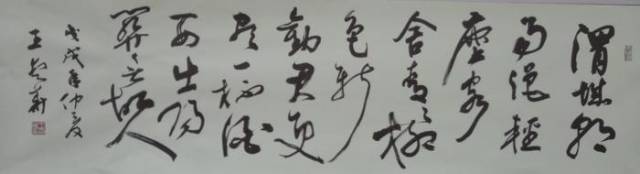 渭城朝
雨浥輕
塵客
舍青々柳
色新
勸君更
盡一杯酒
西出陽
關无故人
戊戌年仲夏
王